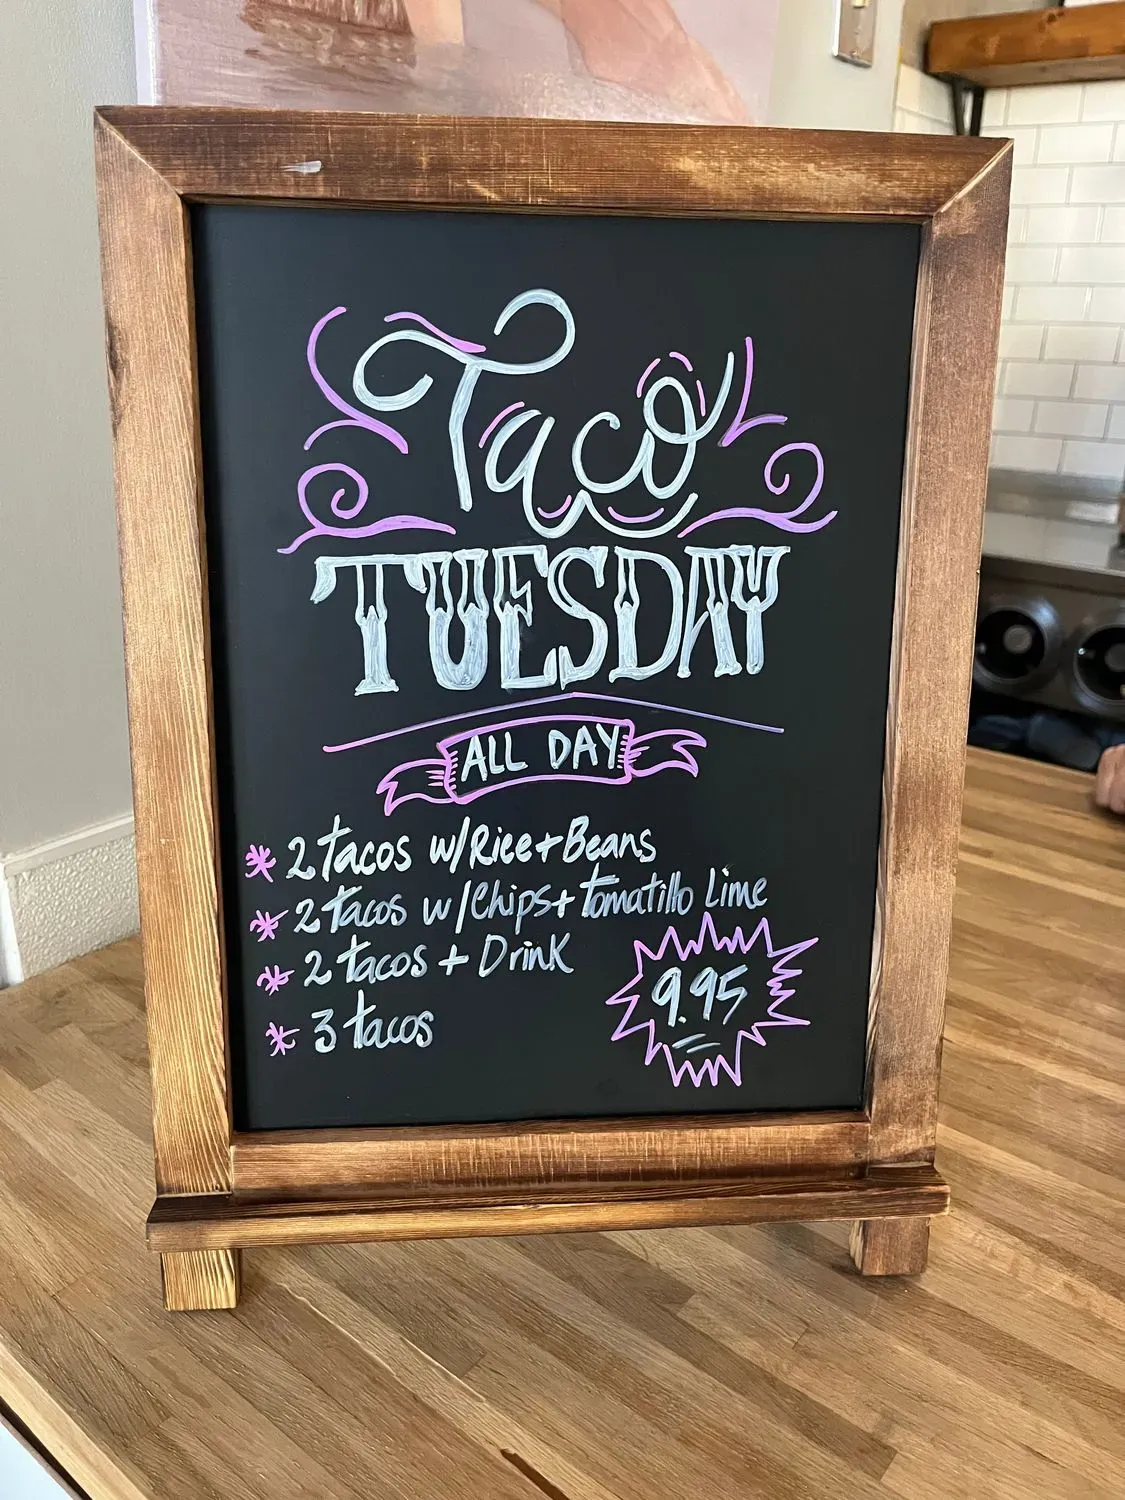 Taco
TUESDAY
ALL DAY
* 2 Tacos w/Rice + Beans
* 2 Tacos w/Chips + Tomatillo Lime
* 2 Tacos + Drink
* 3 Tacos
9.95